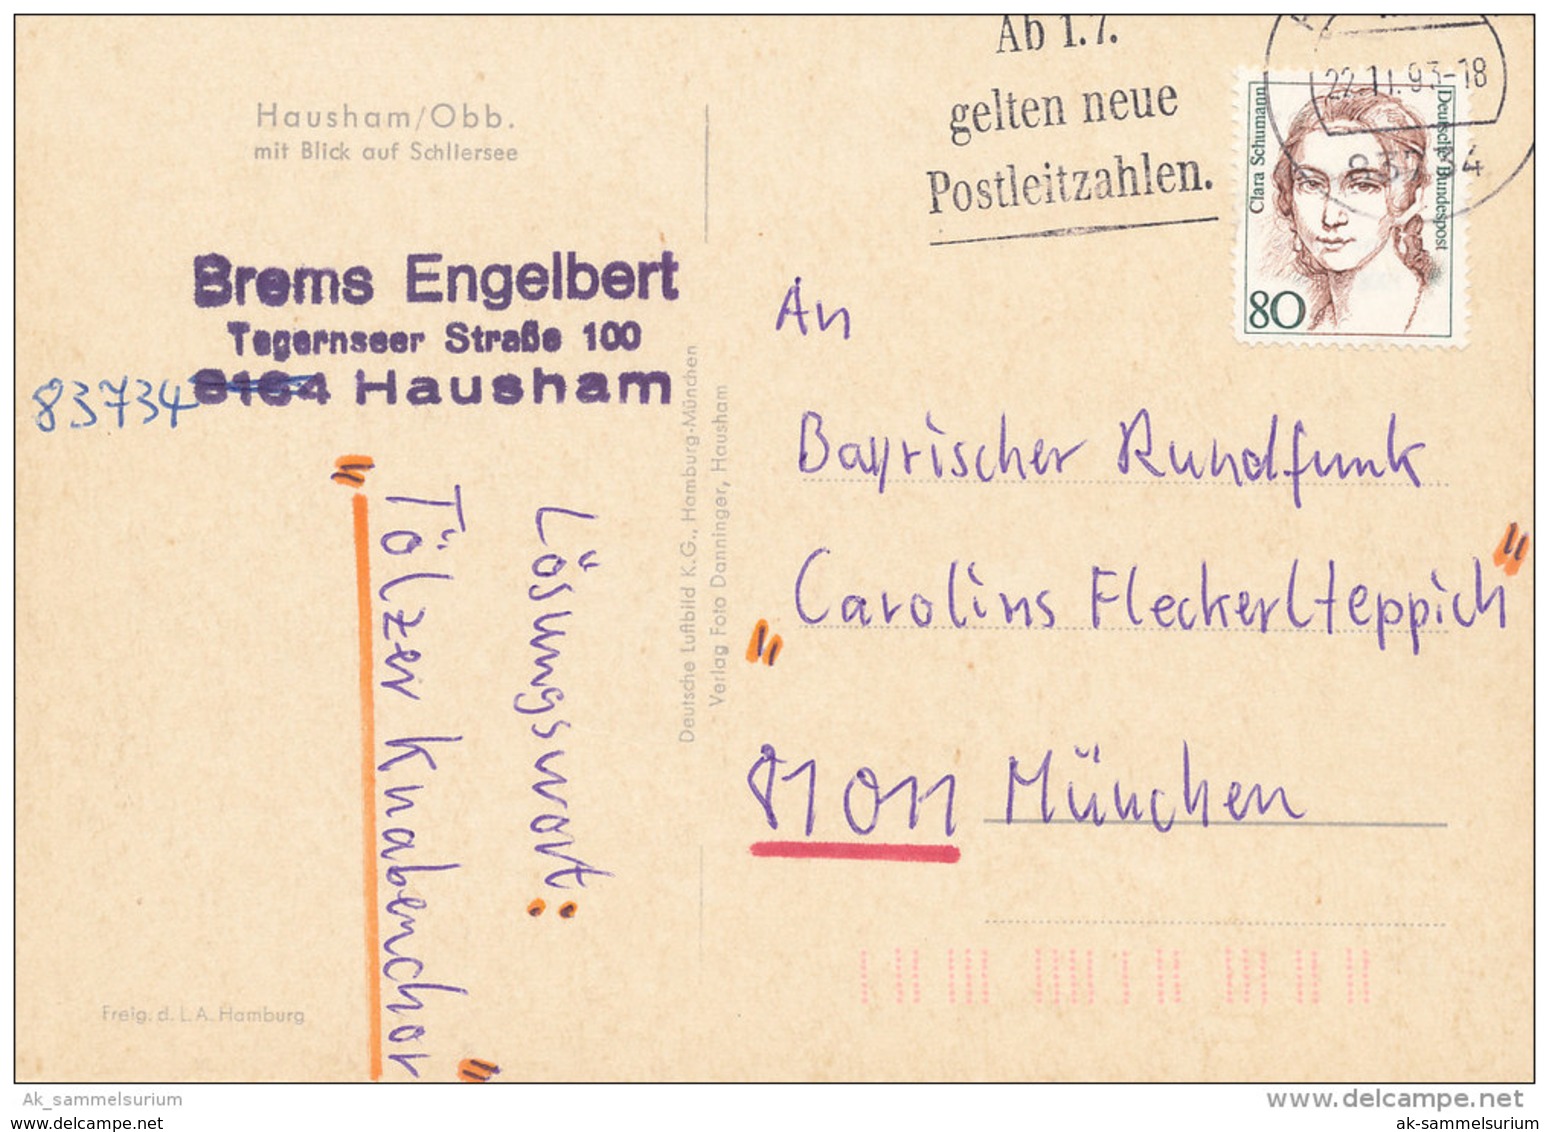 Hausham/Obb.
mit Blick auf Schliersee
Ab 1.7.
gelten neue
Postleitzahlen.
22.11.93-18
Clara Schumann
Deutsche Bundespost
80
Brems Engelbert
Tegernseer Straße 100
83734 8164 Hausham
Lösungswort:
"Tölzer Knabenchor"
Deutsche Luftbild K.G., Hamburg-München
Verlag Foto Danninger, Hausham
An
Bayrischer Rundfunk
"Carolins Fleckerlteppich"
81011 München
Freig. d. L.A. Hamburg
Ak_sammelsurium
www.delcampe.net
www.delcampe.net
ak-sammelsurium